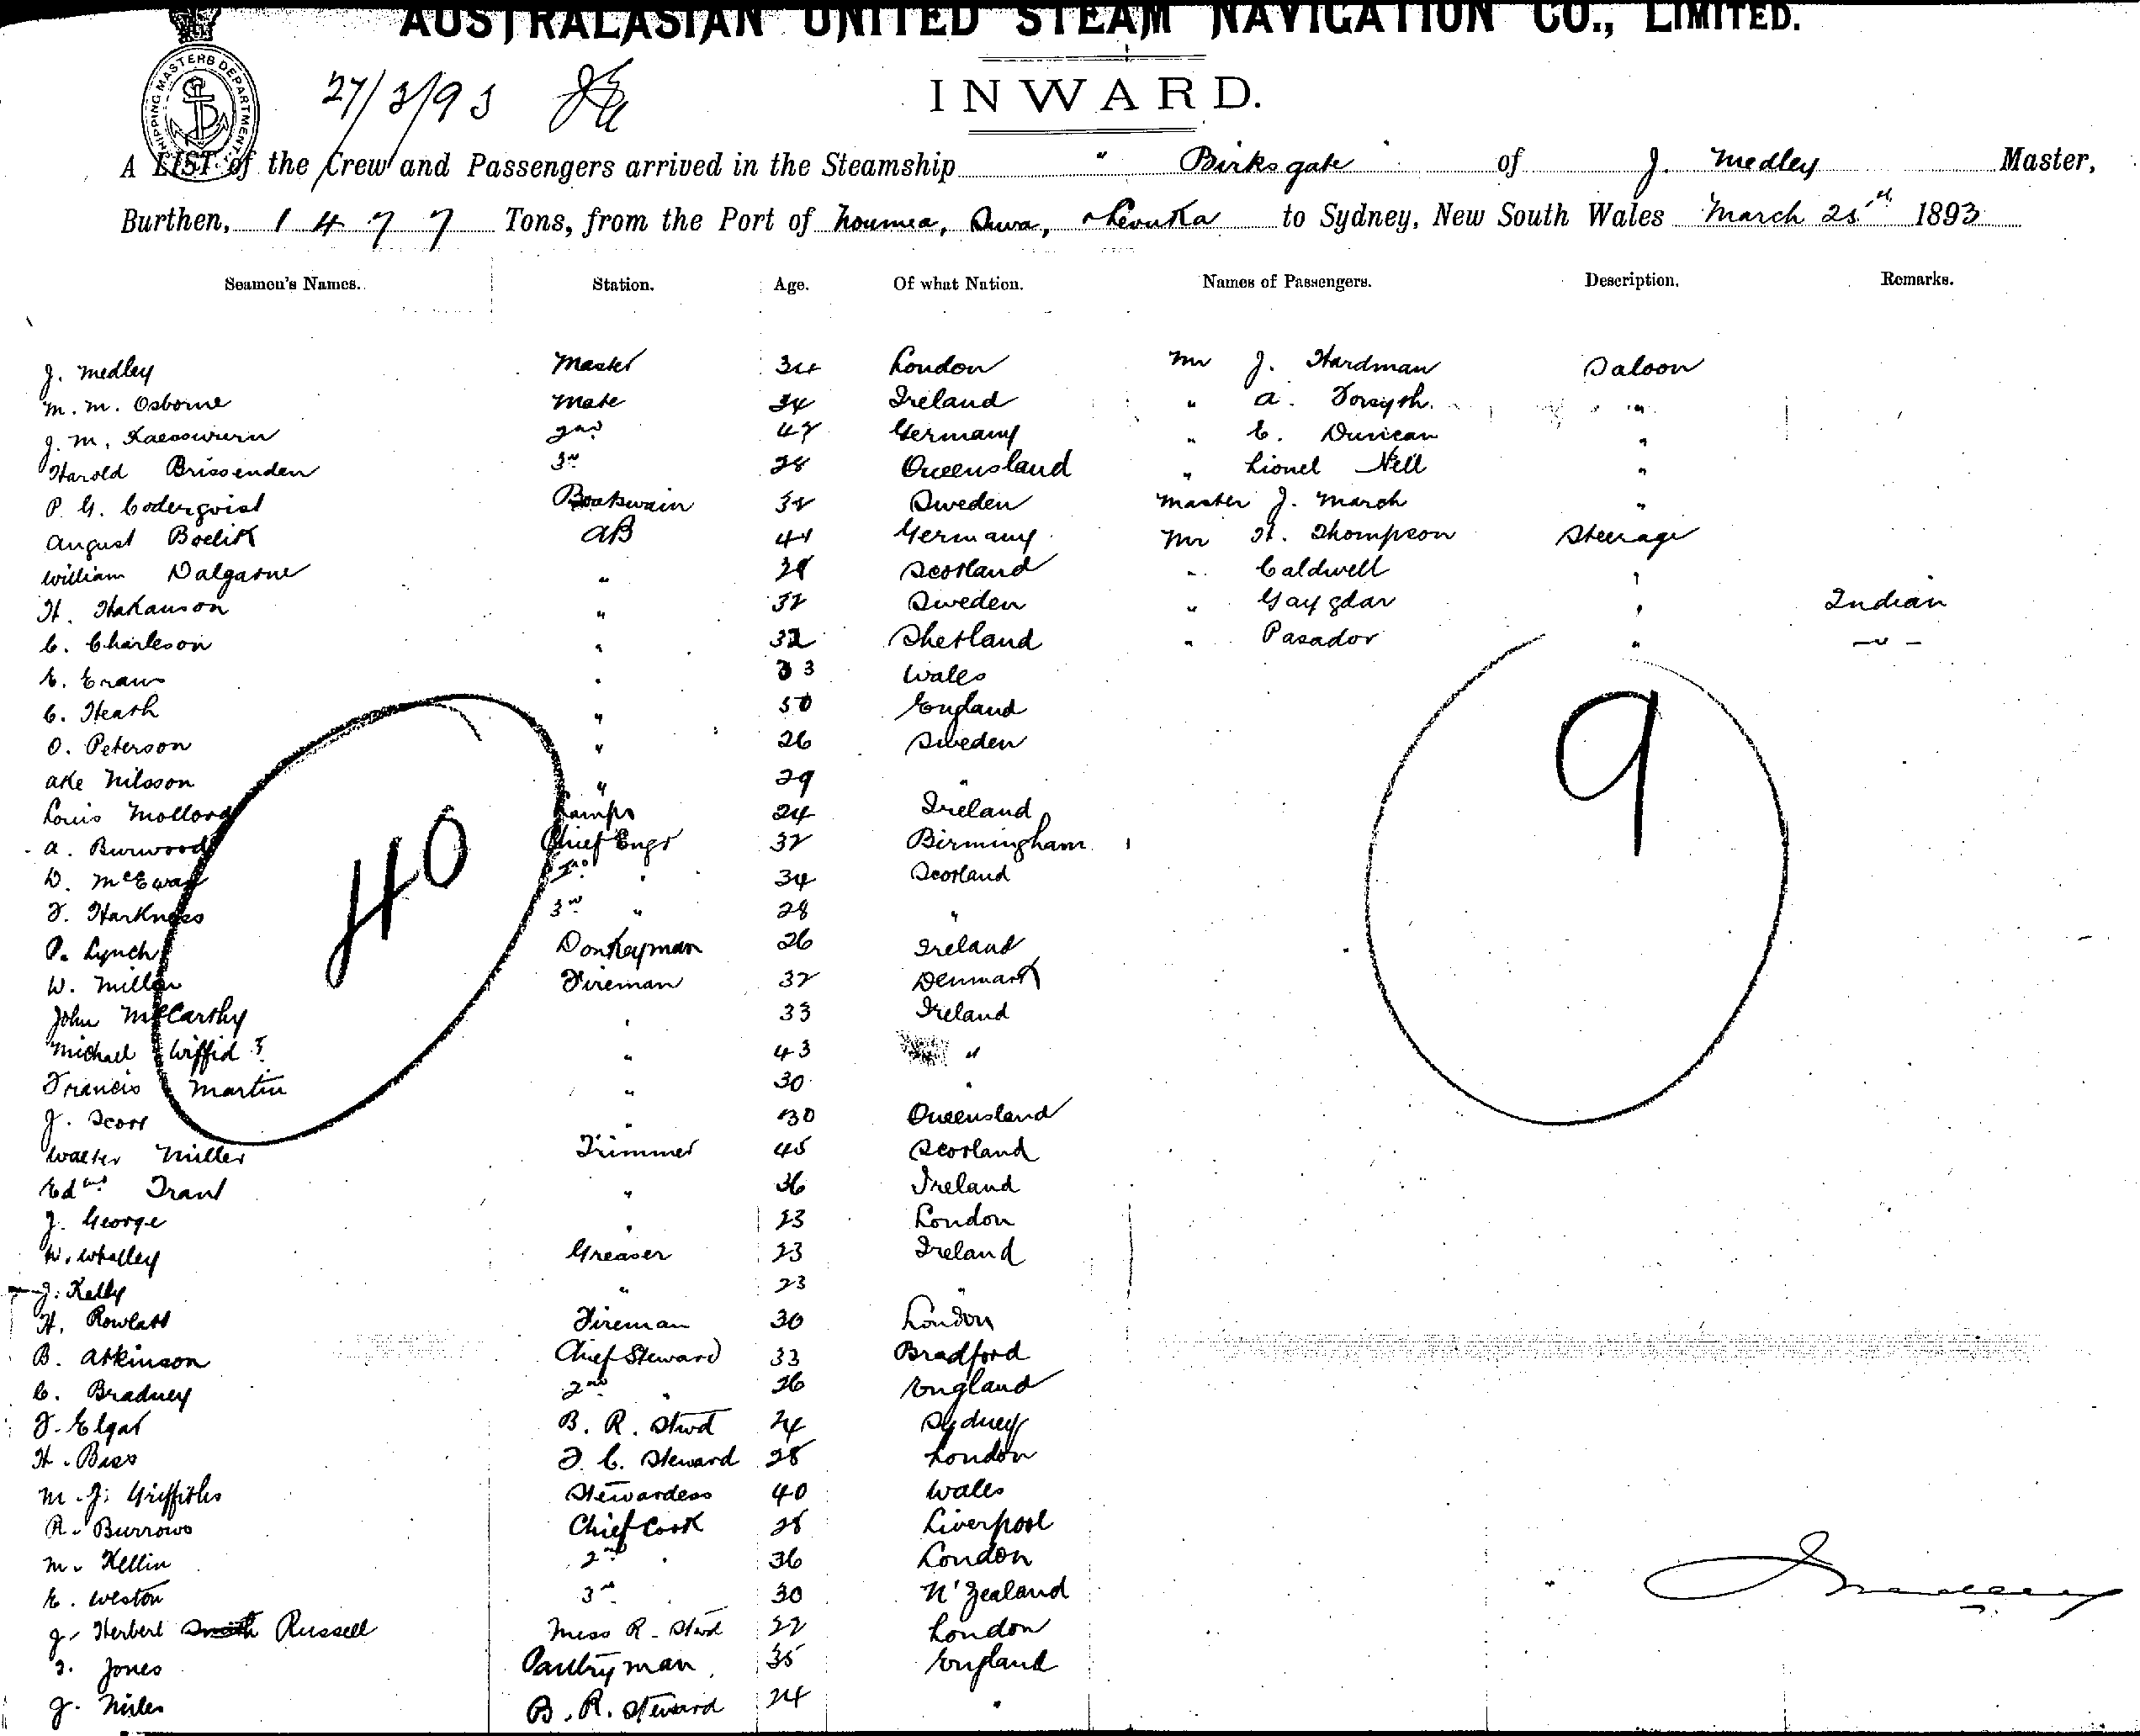 AUSTRALASIAN UNITED STEAM NAVIGATION CO., LIMITED.
SHIPPING MASTERS DEPARTMENT
27/3/93
INWARD.
A LIST of the Crew and Passengers arrived in the Steamship "Birksgate" of J. Medley Master,
Burthen, 1477 Tons, from the Port of Noumea, Suva, & Levuka to Sydney, New South Wales March 25th 1893
Seamen's Names. Station. Age. Of what Nation. Names of Passengers. Description. Remarks.
J. Medley Master 34 London Mr J. Hardman Saloon
M. M. Osborne Mate 34 Ireland " A. Forsyth "
J. M. 2nd 47 Germany " C. Duncan "
Harold Brissenden 3rd 28 Queensland " Lionel Nell "
P. G. Coderqvist Boatswain 32 Sweden Master J. March "
August Boelik AB 41 Germany Mr H. Thompson Steerage
William Dalgarne " 28 Scotland " Caldwell "
H. Hakanson " 32 Sweden " Gaygdar " Indian
C. Charleson " 32 Shetland " Pasador " — " —
E. Evans " 33 Wales
C. Heath " 50 England
O. Peterson " 26 Sweden
Ake Nilsson " 29 "
Louis Mollord Lamps 24 Ireland
A. Burwood Chief Engr 32 Birmingham
D. McEwan 2nd " 34 Scotland
F. Harkness 3rd " 28 "
P. Lynch Donkeyman 26 Ireland
W. Miller Fireman 32 Denmark
John McCarthy " 33 Ireland
Michael " 43 "
Francis Martin " 30 "
J. Scott " 30 Queensland
Walter Miller Trimmer 45 Scotland
Edwd Trant " 36 Ireland
J. George " 23 London
W. Whalley Greaser 23 Ireland
J. Kelly " 23 "
H. Rowlatt Fireman 30 London
B. Atkinson Chief Steward 33 Bradford
C. Bradney 2nd " 26 England
F. Elgar B. R. Stwd 24 Sydney
H. Biss F. C. Steward 28 London
M. J. Griffiths Stewardess 40 Wales
R. Burrows Chief Cook 28 Liverpool
M. Kellin 2nd " 36 London
E. Weston 3rd 30 N'Zealand
J. Herbert Smith Russell Mess R. Stwd 22 London
J. Jones Pantryman 35 England
J. Niles B. R. Steward 24 "
40
9
J Medley